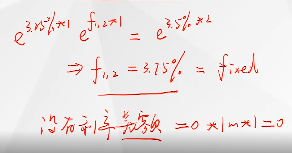 e^{3.25%*1} e^{f_{1,2}*1} = e^{3.5%*2}
⇒ f_{1,2} = 3.75% = fixed
没有利率 = 0 * 1m * 1 = 0